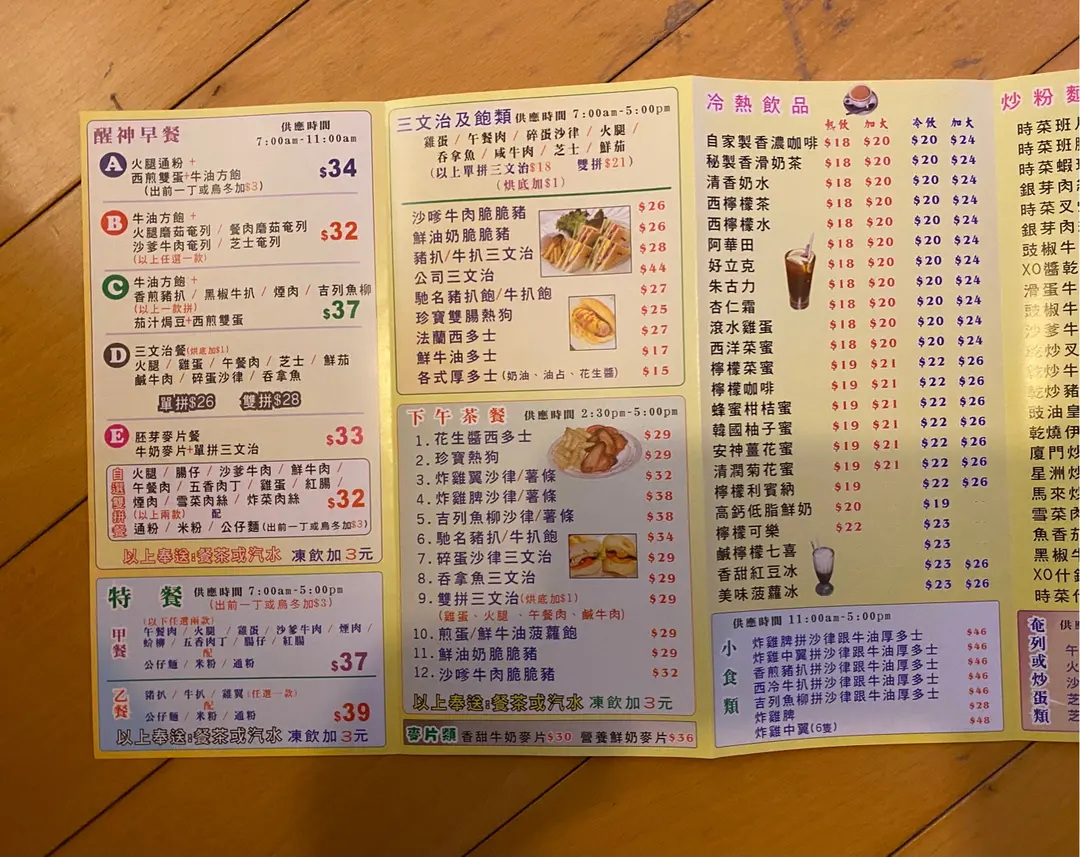 醒神早餐
供應時間
7:00am-11:00am
A 火腿通粉 +
西煎雙蛋+牛油方飽
(出前一丁或烏冬加$3)
$34
B 牛油方飽 +
火腿磨菇奄列 / 餐肉磨菇奄列
沙爹牛肉奄列 / 芝士奄列
(以上任選一款)
$32
C 牛油方飽 +
香煎豬扒 / 黑椒牛扒 / 煙肉 / 吉列魚柳
(以上一款拼)
茄汁焗豆+西煎雙蛋
$37
D 三文治餐(烘底加$1)
火腿 / 雞蛋 / 午餐肉 / 芝士 / 鮮茄
鹹牛肉 / 碎蛋沙律 / 吞拿魚
單拼$26 雙拼$28
E 胚芽麥片餐
牛奶麥片+單拼三文治
$33
自選雙拼餐
火腿 / 腸仔 / 沙爹牛肉 / 鮮牛肉 /
午餐肉 / 五香肉丁 / 雞蛋 / 紅腸 /
煙肉 / 雪菜肉絲 / 炸菜肉絲
(以上兩款) 配
通粉 / 米粉 / 公仔麵(出前一丁或烏冬加$3)
$32
以上奉送:餐茶或汽水 凍飲加3元
特餐 供應時間 7:00am-5:00pm
(出前一丁或烏冬加$3)
甲餐
(以下任選兩款)
午餐肉 / 火腿 / 雞蛋 / 沙爹牛肉 / 煙肉 /
蛤柳 / 五香肉丁 / 腸仔 / 紅腸
配
公仔麵 / 米粉 / 通粉
$37
乙餐
豬扒 / 牛扒 / 雞翼 (任選一款)
配
公仔麵 / 米粉 / 通粉
$39
以上奉送:餐茶或汽水 凍飲加3元
三文治及飽類 供應時間 7:00am-5:00pm
雞蛋 / 午餐肉 / 碎蛋沙律 / 火腿 /
吞拿魚 / 咸牛肉 / 芝士 / 鮮茄
(以上單拼三文治$18 雙拼$21)
(烘底加$1)
沙嗲牛肉脆脆豬 $26
鮮油奶脆脆豬 $26
豬扒/牛扒三文治 $28
公司三文治 $44
馳名豬扒飽/牛扒飽 $27
珍寶雙腸熱狗 $25
法蘭西多士 $27
鮮牛油多士 $17
各式厚多士(奶油、油占、花生醬) $15
下午茶餐 供應時間 2:30pm-5:00pm
1. 花生醬西多士 $29
2. 珍寶熱狗 $29
3. 炸雞翼沙律/薯條 $32
4. 炸雞脾沙律/薯條 $38
5. 吉列魚柳沙律/薯條 $38
6. 馳名豬扒/牛扒飽 $34
7. 碎蛋沙律三文治 $29
8. 吞拿魚三文治 $29
9. 雙拼三文治(烘底加$1) $29
(雞蛋、火腿、午餐肉、鹹牛肉)
10. 煎蛋/鮮牛油菠蘿飽 $29
11. 鮮油奶脆脆豬 $29
12. 沙嗲牛肉脆脆豬 $32
以上奉送:餐茶或汽水 凍飲加3元
麥片類 香甜牛奶麥片$30 營養鮮奶麥片$36
冷熱飲品
熱飲 加大 冷飲 加大
自家製香濃咖啡 $18 $20 $20 $24
秘製香滑奶茶 $18 $20 $20 $24
清香奶水 $18 $20 $20 $24
西檸檬茶 $18 $20 $20 $24
西檸檬水 $18 $20 $20 $24
阿華田 $18 $20 $20 $24
好立克 $18 $20 $20 $24
朱古力 $18 $20 $20 $24
杏仁霜 $18 $20 $20 $24
滾水雞蛋 $18 $20 $20 $24
西洋菜蜜 $18 $20 $20 $24
檸檬菜蜜 $19 $21 $22 $26
檸檬咖啡 $19 $21 $22 $26
蜂蜜柑桔蜜 $19 $21 $22 $26
韓國柚子蜜 $19 $21 $22 $26
安神薑花蜜 $19 $21 $22 $26
清潤菊花蜜 $19 $21 $22 $26
檸檬利賓納 $19 $22 $26
高鈣低脂鮮奶 $20 $19
檸檬可樂 $22 $23
鹹檸檬七喜 $23
香甜紅豆冰 $23 $26
美味菠蘿冰 $23 $26
小食類
供應時間 11:00am-5:00pm
炸雞脾拼沙律跟牛油厚多士 $46
炸雞中翼拼沙律跟牛油厚多士 $46
香煎豬扒拼沙律跟牛油厚多士 $46
西冷牛扒拼沙律跟牛油厚多士 $46
吉列魚柳拼沙律跟牛油厚多士 $46
炸雞脾 $28
炸雞中翼(6隻) $48
炒粉麵
時菜班
時菜班
時菜蝦
銀芽肉
時菜叉
銀芽肉
豉椒牛
XO醬乾
滑蛋牛
豉椒牛
沙爹牛
乾炒叉
乾炒牛
乾炒豬
豉油皇
乾燒伊
廈門炒
星洲炒
馬來炒
雪菜肉
魚香茄
黑椒牛
XO什
時菜什
奄列或炒蛋類
供
午
火
沙
芝
芝